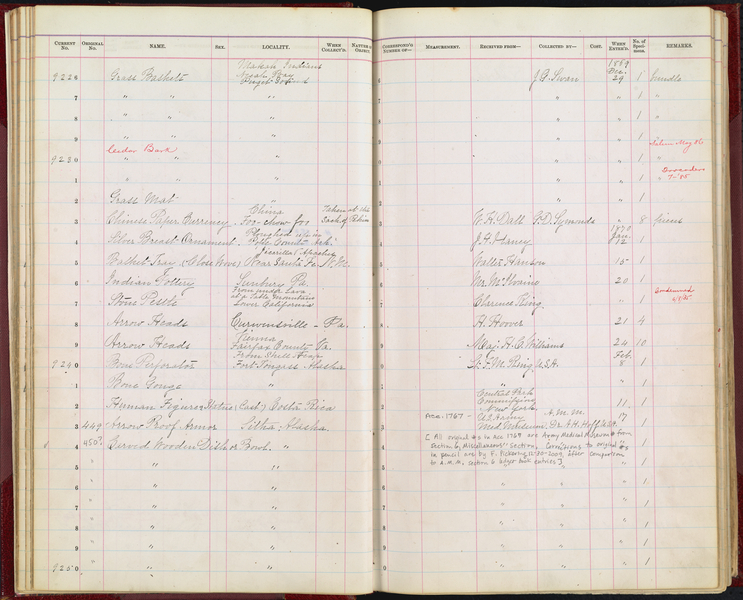 CURRENT No. ORIGINAL No. NAME. SEX. LOCALITY. WHEN COLLECT'D. NATURE OF OBJECT. CORRESPOND'G NUMBER OF— MEASUREMENT. RECEIVED FROM— COLLECTED BY— COST. WHEN ENTER'D. No. of Specimens. REMARKS.
Makah Indians 1869
Neah Bay Dec.
9226 Grass Baskets Puget Sound 6 J. G. Swan 29 1 bundle
7 " " " 7 " " 1 "
8 " " " 8 " " 1 "
9 " " " 9 " " 1
Cedar Bark
9230 " " " 0 " " 1 "
1 " " " 1 " " 1 "
2 Grass Mat " 2 " " 1
China Taken at the
3 Chinese Paper Currency Foo-chow foo Sack of Pekin 3 W. H. Dall " 8 pieces
Ploughed up in 1870
Jan.
4 Silver Breast Ornament 4 12 1
5 Basket Tray (Close Wove) Near Santa Fe, N.M. 5 15 1
6 Indian Pottery Sunbury Pa. 6 20 1
From under Lava
at a Table Mountain
7 Stone Pestle Lower California 7 Clarence King " 1
8 Arrow Heads Curwensville - Pa. 8 H. Hoover 21 4
Vienna
9 Arrow Heads Fairfax County - Va. 9 Maj. H. C. Williams 24 10
From Shell Heap Feb.
9240 Bone Perforator Fort Tongass Alaska 0 Lt. F. M. Ring U.S.A. 8 1
1 Bone Gouge " 1 " " 1
Central Park
2 Human Figure, Statue (Cast) Costa Rica 2 New York 11 1
Acc. 1767 - A.M.M.
3 449 Arrow Proof Armor Sitka, Alaska. 3 Med. Museum Dr. A. H. Hoff U.S.A. 17 1
4 450? Carved Wooden Dish or Bowl. " 4 1
[All original #s in Acc 1767 are Army Medical Museum # from
Section 6, "Miscellaneous" Section. Corrections to original #s
in pencil are by F. Pickering, 12-30-2009, after comparison
to A.M.M. Section 6 ledger book entries]
5 " " " 5 " " 1
6 " " " 6 " " 1
7 " " " 7 " " 1
8 " " " 8 " " 1
9 " " " 9 " " 1
9250 " " 0 " " 1